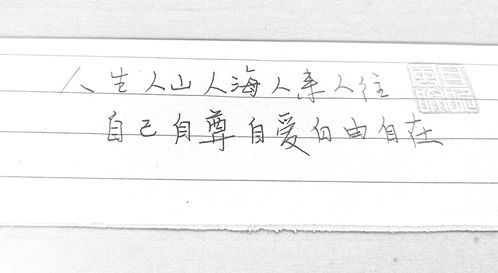 人生人山人海人来人往
自己自尊自爱自由自在